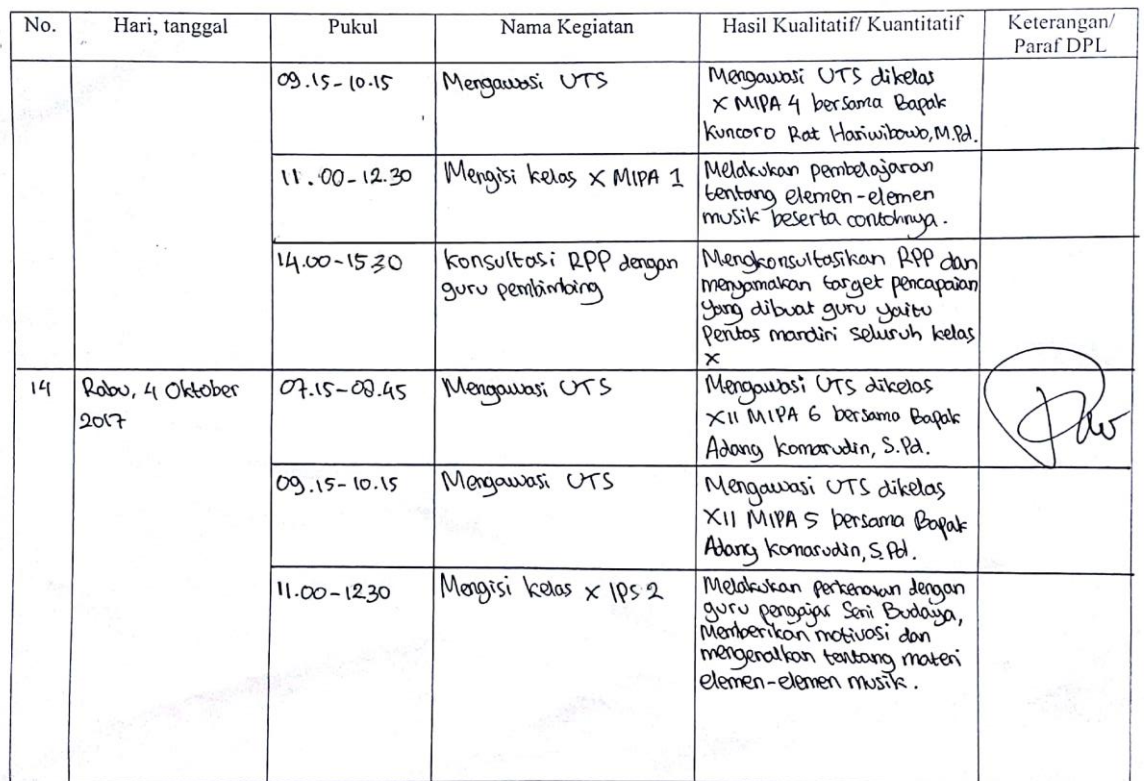 No. Hari, tanggal Pukul Nama Kegiatan Hasil Kualitatif/ Kuantitatif Keterangan/
Paraf DPL
09.15-10.15 Mengawasi UTS Mengawasi UTS dikelas
X MIPA 4 bersama Bapak
Kuncoro Rat Hariwibowo, M.Pd.
11.00-12.30 Mengisi kelas X MIPA 1 Melakukan pembelajaran
tentang elemen-elemen
musik beserta contohnya.
14.00-15.30 Konsultasi RPP dengan Mengkonsultasikan RPP dan
guru pembimbing menyamakan target pencapaian
yang dibuat guru yaitu
Pentas mandiri seluruh kelas
X
14 Rabu, 4 Oktober 07.15-08.45 Mengawasi UTS Mengawasi UTS dikelas
2017 XII MIPA 6 bersama Bapak
Adang Komarudin, S.Pd.
09.15-10.15 Mengawasi UTS Mengawasi UTS dikelas
XII MIPA 5 bersama Bapak
Adang Komarudin, S.Pd.
11.00-12.30 Mengisi kelas X IPS 2 Melakukan perkenalan dengan
guru pengajar Seni Budaya,
Memberikan motivasi dan
mengenalkan tentang materi
elemen-elemen musik.